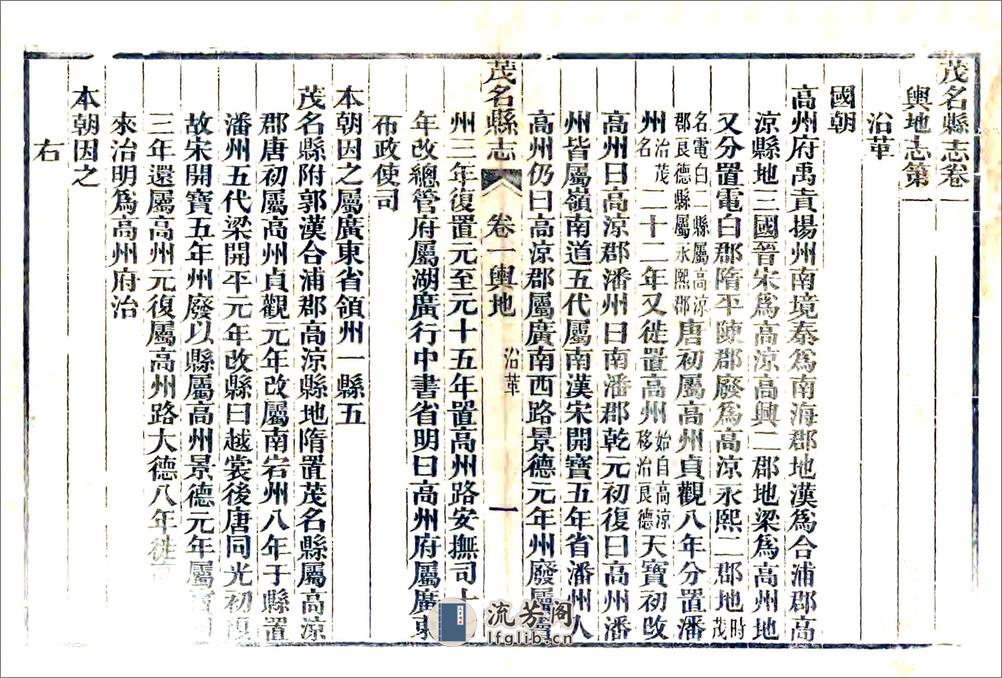 茂名縣志卷一
輿地志第一
沿革
國朝
高州府禹貢揚州南境秦爲南海郡地漢爲合浦郡高
涼縣地三國晉宋爲高涼高興二郡地梁爲高州地
又分置電白郡隋平陳郡廢爲高涼永熙二郡地時茂
名電白二縣屬高涼郡良德縣屬永熙郡唐初屬高州貞觀八年分置潘
州治茂名二十二年又徙置高州始自高涼移治良德天寶初改
高州曰高涼郡潘州曰南潘郡乾元初復曰高州潘
州皆屬嶺南道五代屬南漢宋開寶五年省潘州入
高州仍曰高涼郡屬廣南西路景德元年州廢屬竇
茂名縣志 卷一輿地 沿革 一
州三年復置元至元十五年置高州路安撫司十
年改總管府屬湖廣行中書省明曰高州府屬廣東
布政使司
本朝因之屬廣東省領州一縣五
茂名縣附郭漢合浦郡高涼縣地隋置茂名縣屬高涼
郡唐初屬高州貞觀元年改屬南宕州八年于縣置
潘州五代梁開平元年改縣曰越裳後唐同光初復
故宋開寶五年州廢以縣屬高州景德元年屬竇州
三年還屬高州元復屬高州路大德八年徙
來治明爲高州府治
本朝因之
右
流芳阁
lfglib.cn